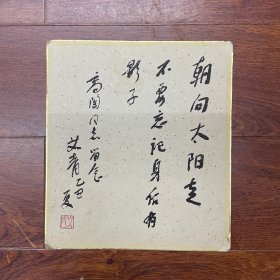 朝向太阳走
不要忘记身后有
影子
高陶同志留念
艾青 乙丑
夏